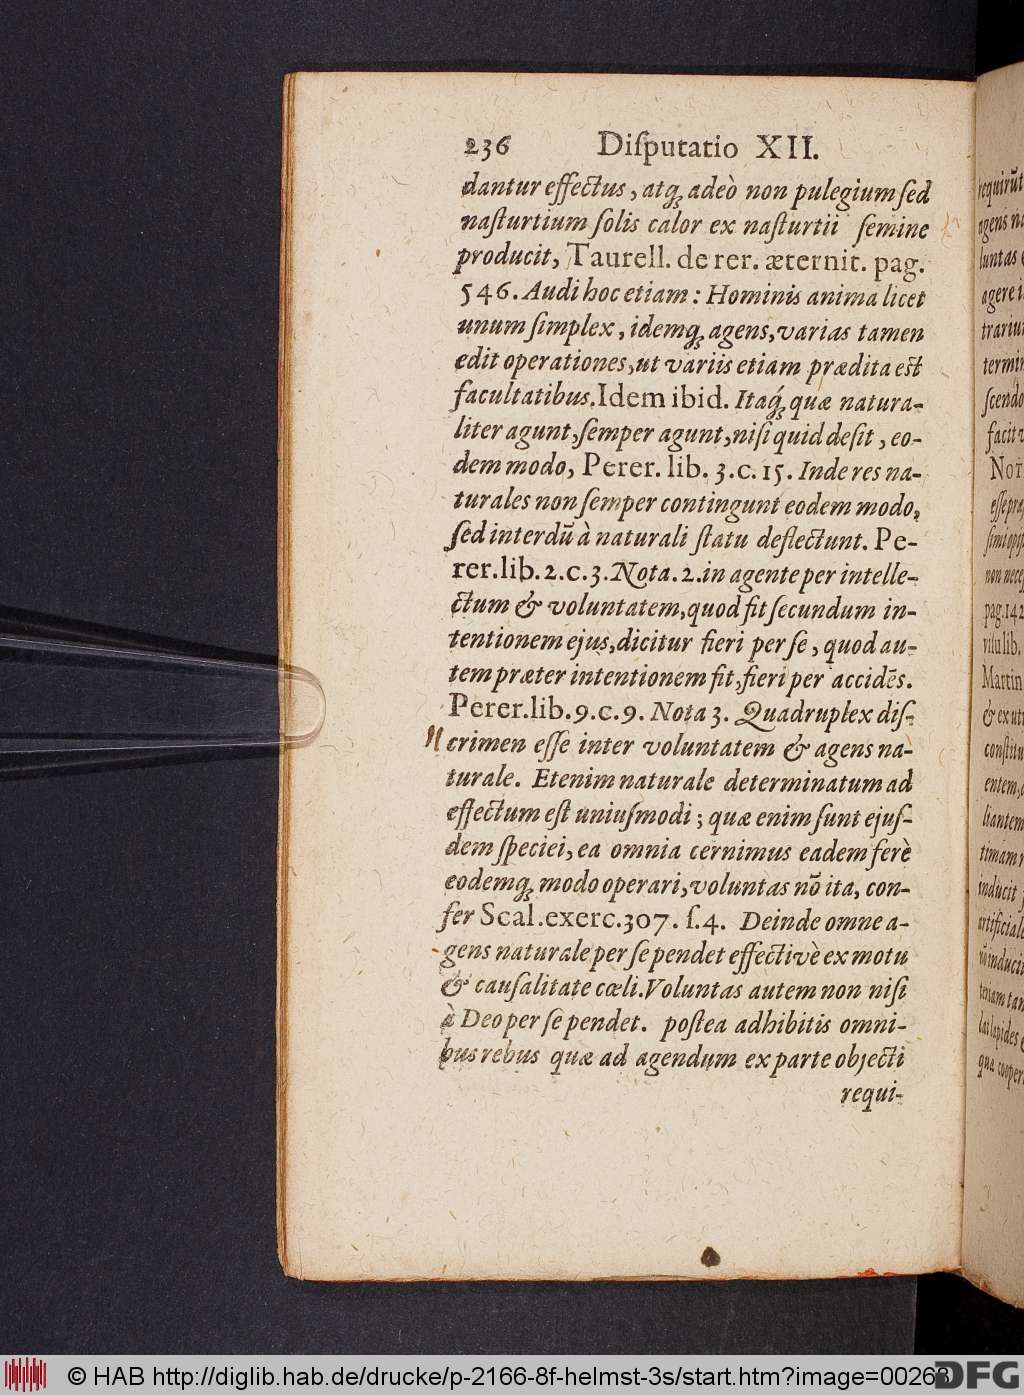 236 Diſputatio XII.
dantur effectus, atq́; adeò non pulegium ſed
naſturtium ſolis calor ex naſturtii ſemine
producit, Taurell. de rer. æternit. pag.
546. Audi hoc etiam: Hominis anima licet
unum ſimplex, idemq́; agens, varias tamen
edit operationes, ut variis etiam prædita eſt
facultatibus. Idem ibid. Itaq́; quæ natura-
liter agunt, ſemper agunt, niſi quid deſit, eo-
dem modo, Perer. lib. 3. c. 15. Inde res na-
turales non ſemper contingunt eodem modo,
ſed interdū à naturali ſtatu deflectunt. Pe-
rer. lib. 2. c. 3. Nota. 2. in agente per intelle-
ctum & voluntatem, quod fit ſecundum in-
tentionem ejus, dicitur fieri per ſe, quod au-
tem præter intentionem fit, fieri per accidēs.
Perer. lib. 9. c. 9. Nota 3. Quadruplex diſ-
crimen eſſe inter voluntatem & agens na-
turale. Etenim naturale determinatum ad
effectum eſt uniuſmodi; quæ enim ſunt ejuſ-
dem ſpeciei, ea omnia cernimus eadem ferè
eodemq́; modo operari, voluntas nō ita, con-
fer Scal. exerc. 307. ſ. 4. Deinde omne a-
gens naturale per ſe pendet effectivè ex motu
& cauſalitate cœli. Voluntas autem non niſi
à Deo per ſe pendet. poſtea adhibitis omni-
bus rebus quæ ad agendum ex parte objecti
requi-
requirūt
agens na
luntas
agere i
trariu
termin
ſcendo
facit
Not
eſſe
non neceſ
pag. 142
lib.
Martin
& ex
conſtitu
entem,
liantem
timam
inducit
artificiale
inducit
lapides
cooper
© HAB http://diglib.hab.de/drucke/p-2166-8f-helmst-3s/start.htm?image=00268
DFG